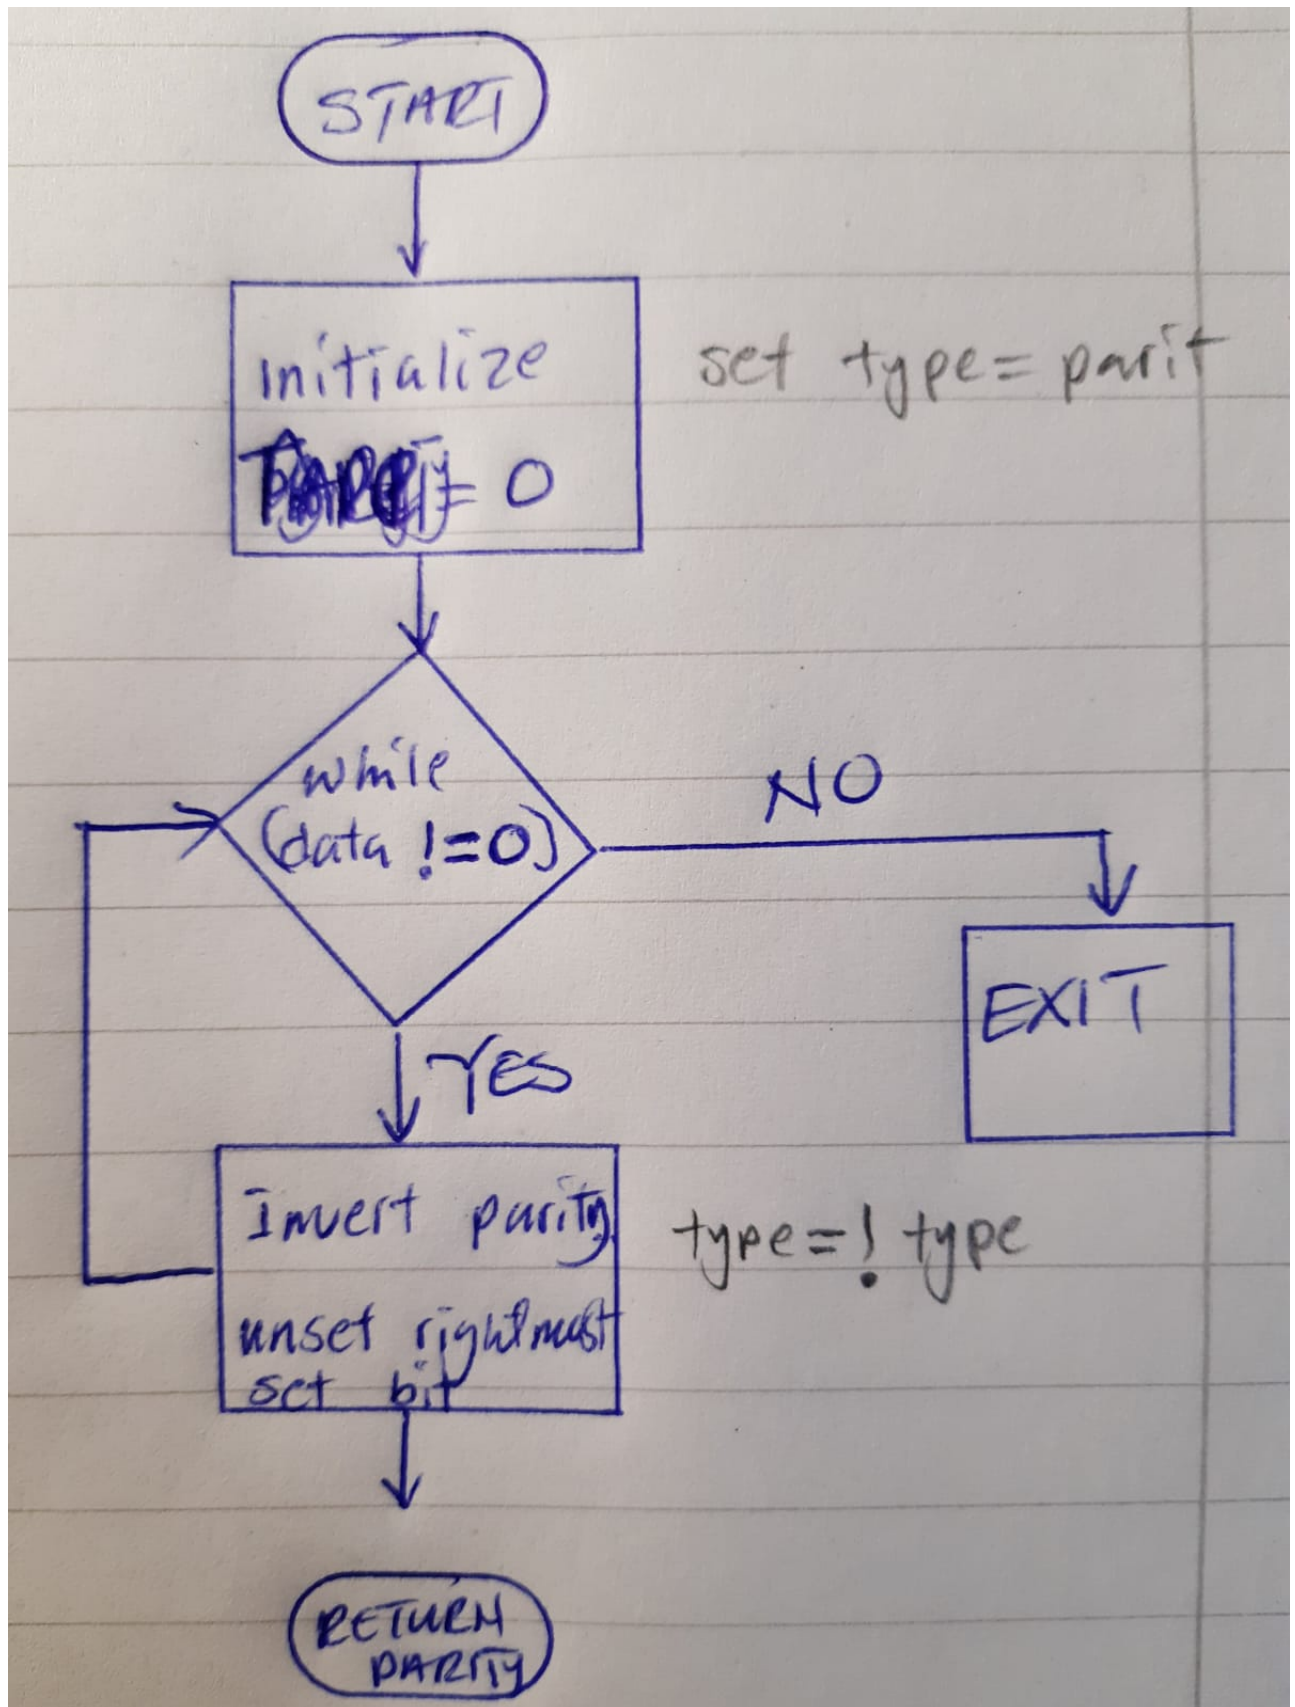 START
initialize
= 0
set type = parit
while
(data != 0)
NO
EXIT
YES
Invert parity
unset rightmost
set bit
type = ! type
RETURN
PARITY